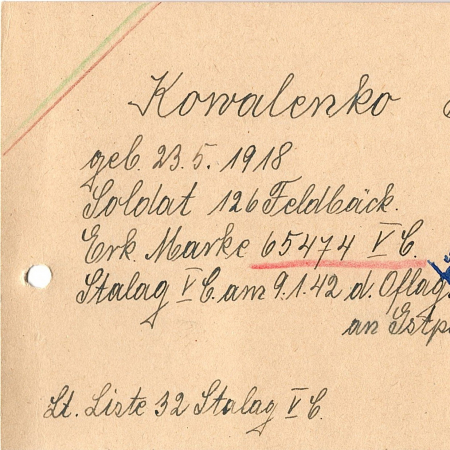 Kowalenko
geb. 23.5. 1918
Soldat 126 Feldbäck.
Erk. Marke 65474 V C.
Stalag V C. am 9.1.42 d. Oflag
an Gstp
Lt. Liste 32 Stalag V C.